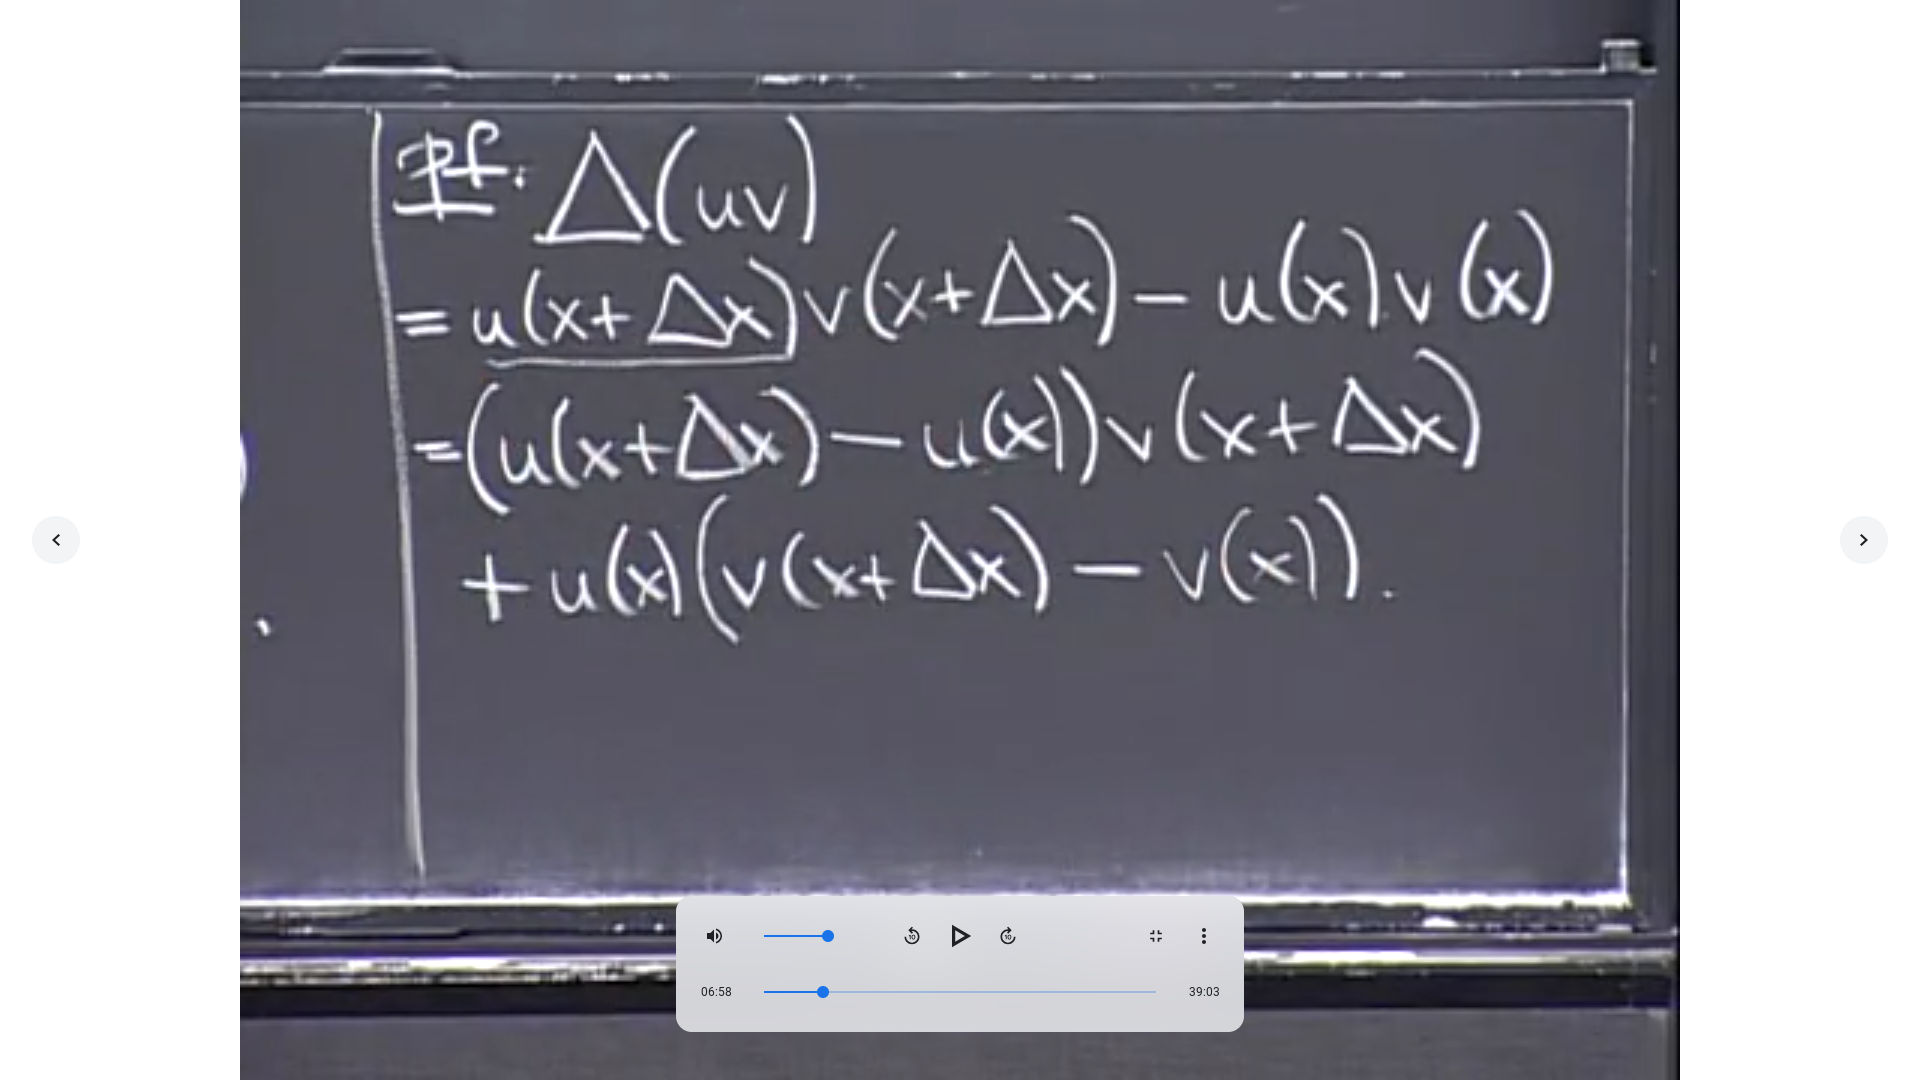 Pf. Δ(uv)
= u(x+Δx)v(x+Δx) − u(x)v(x)
= (u(x+Δx) − u(x))v(x+Δx)
+ u(x)(v(x+Δx) − v(x)).
10
10
06:58
39:03